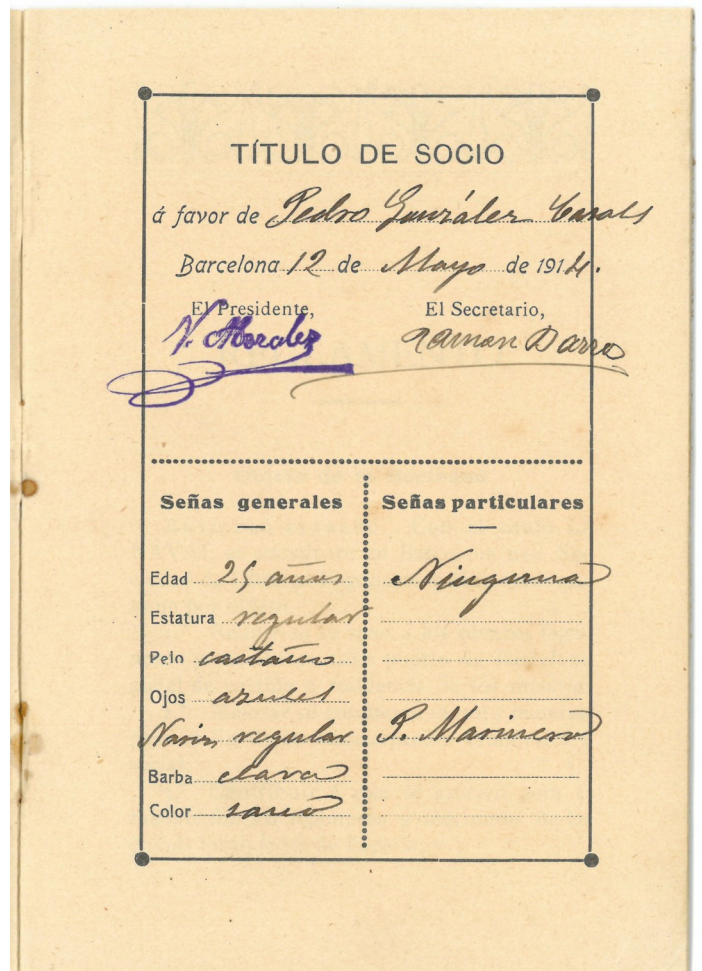 TÍTULO DE SOCIO
á favor de Pedro González Casals
Barcelona 12 de Mayo de 1914.
El Presidente, El Secretario,
V. Morales Ramon Darro
Señas generales
Edad 25 años
Estatura regular
Pelo castaño
Ojos azules
Nariz regular
Barba clara
Color sano
Señas particulares
Ninguna
P. Marinero